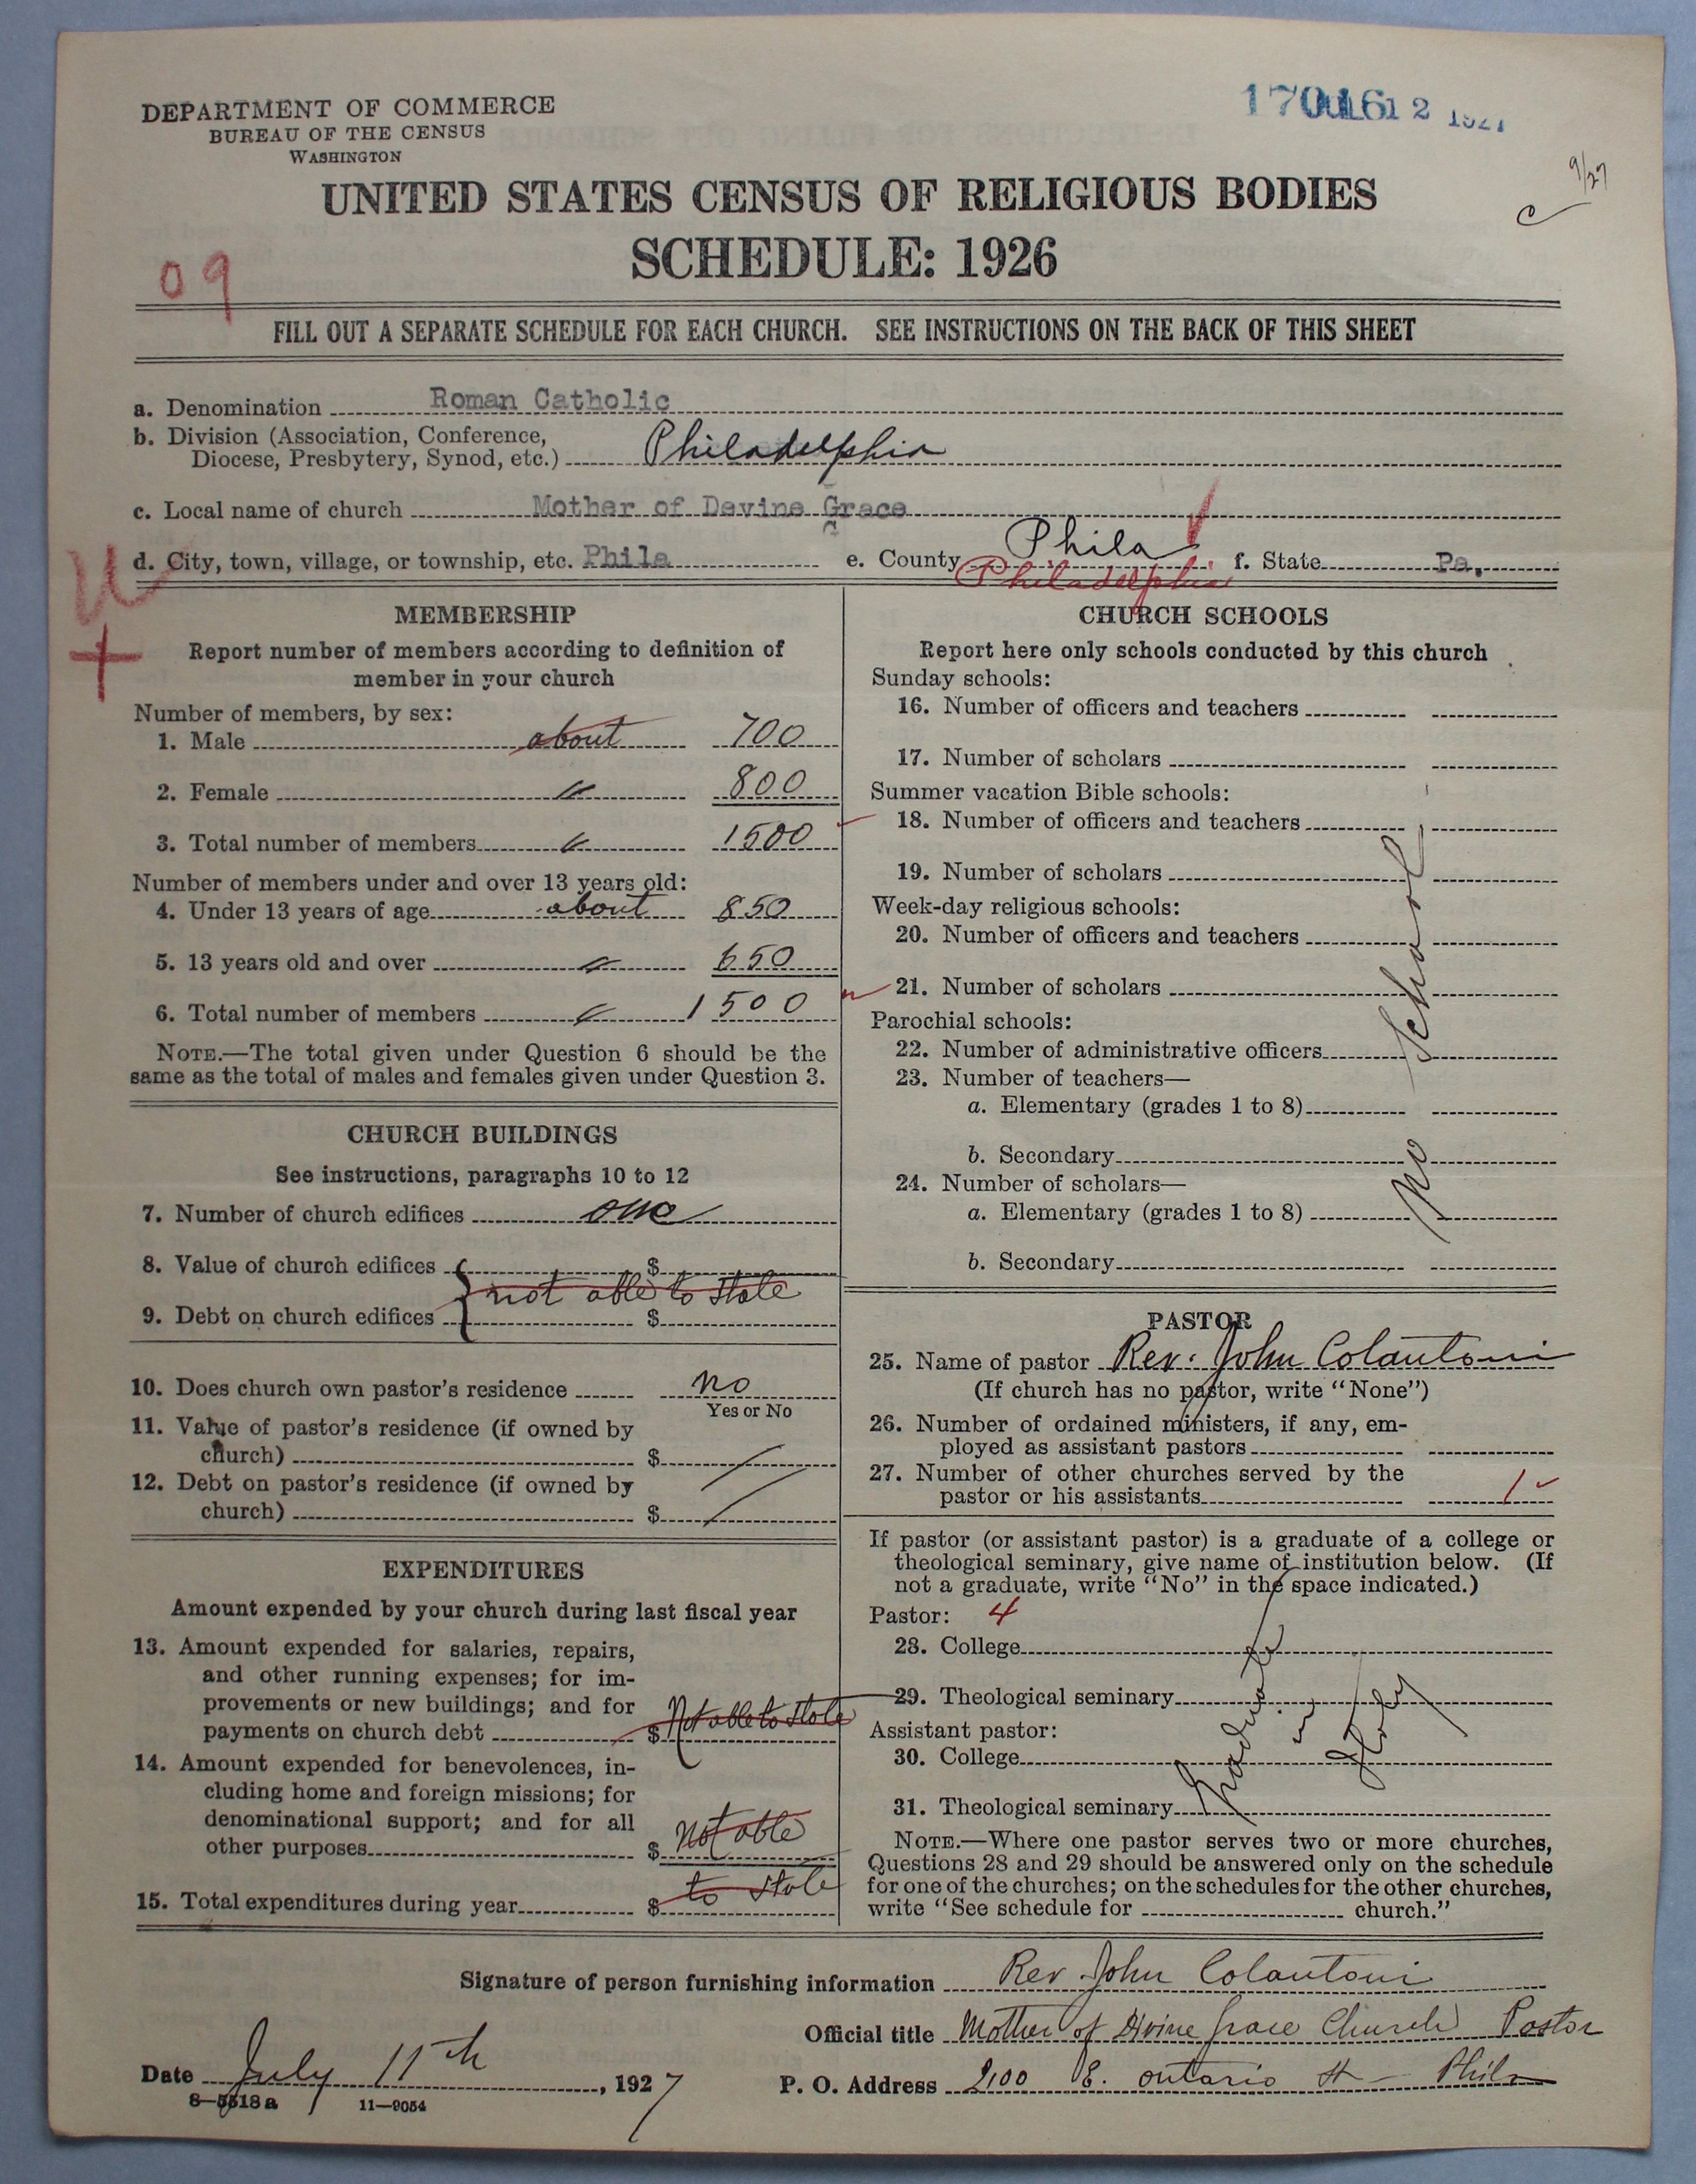 DEPARTMENT OF COMMERCE
BUREAU OF THE CENSUS
WASHINGTON
UNITED STATES CENSUS OF RELIGIOUS BODIES
SCHEDULE: 1926
9/27
C
09
FILL OUT A SEPARATE SCHEDULE FOR EACH CHURCH. SEE INSTRUCTIONS ON THE BACK OF THIS SHEET
a. Denomination Roman Catholic
b. Division (Association, Conference,
Diocese, Presbytery, Synod, etc.) Philadelphia
c. Local name of church Mother of Devine Grace
d. City, town, village, or township, etc. Phila e. County Phila f. State Pa.
Philadelphia
U
+
MEMBERSHIP
Report number of members according to definition of
member in your church
Number of members, by sex:
1. Male about 700
2. Female " 800
3. Total number of members " 1500
Number of members under and over 13 years old:
4. Under 13 years of age about 850
5. 13 years old and over " 650
6. Total number of members " 1500
NOTE.—The total given under Question 6 should be the
same as the total of males and females given under Question 3.
CHURCH BUILDINGS
See instructions, paragraphs 10 to 12
7. Number of church edifices one
8. Value of church edifices $
not able to state
9. Debt on church edifices $
10. Does church own pastor's residence no
Yes or No
11. Value of pastor's residence (if owned by
church) $
12. Debt on pastor's residence (if owned by
church) $
EXPENDITURES
Amount expended by your church during last fiscal year
13. Amount expended for salaries, repairs,
and other running expenses; for im-
provements or new buildings; and for
payments on church debt $ Not able to state
14. Amount expended for benevolences, in-
cluding home and foreign missions; for
denominational support; and for all
other purposes $ not able
15. Total expenditures during year $ to state
CHURCH SCHOOLS
Report here only schools conducted by this church
Sunday schools:
16. Number of officers and teachers
17. Number of scholars
Summer vacation Bible schools:
18. Number of officers and teachers
19. Number of scholars
Week-day religious schools:
20. Number of officers and teachers
21. Number of scholars
Parochial schools:
22. Number of administrative officers
23. Number of teachers—
a. Elementary (grades 1 to 8)
b. Secondary
24. Number of scholars—
a. Elementary (grades 1 to 8)
b. Secondary
No School
PASTOR
25. Name of pastor Rev. John Colantoni
(If church has no pastor, write "None")
26. Number of ordained ministers, if any, em-
ployed as assistant pastors
27. Number of other churches served by the
pastor or his assistants 1
If pastor (or assistant pastor) is a graduate of a college or
theological seminary, give name of institution below. (If
not a graduate, write "No" in the space indicated.)
Pastor: 4
28. College
29. Theological seminary
Assistant pastor:
30. College
31. Theological seminary
Graduate
in
Italy
NOTE.—Where one pastor serves two or more churches,
Questions 28 and 29 should be answered only on the schedule
for one of the churches; on the schedules for the other churches,
write "See schedule for church."
Signature of person furnishing information Rev John Colantoni
Official title Mother of Divine Grace Church Pastor
Date July 11th, 1927 P. O. Address 2100 E. Ontario St - Phila
8—5518a 11—9054